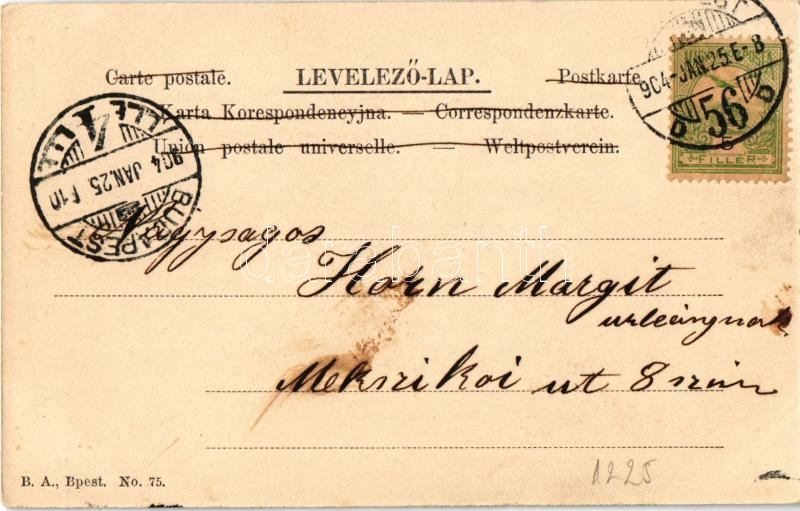 Carte postale. LEVELEZŐ-LAP. Postkarte.
Karta Korespondencyjna. — Correspondenzkarte.
Union postale universelle. — Weltpostverein.
904 JAN.25. E-8
56
D D
POSTA
FILLÉR
904 JAN.25. F10
BUDAPEST
Nagysagos
darabanth
Horn Margit
urleánynak
Mekszikoi ut 8 szám
B. A., Bpest. No. 75.
1225